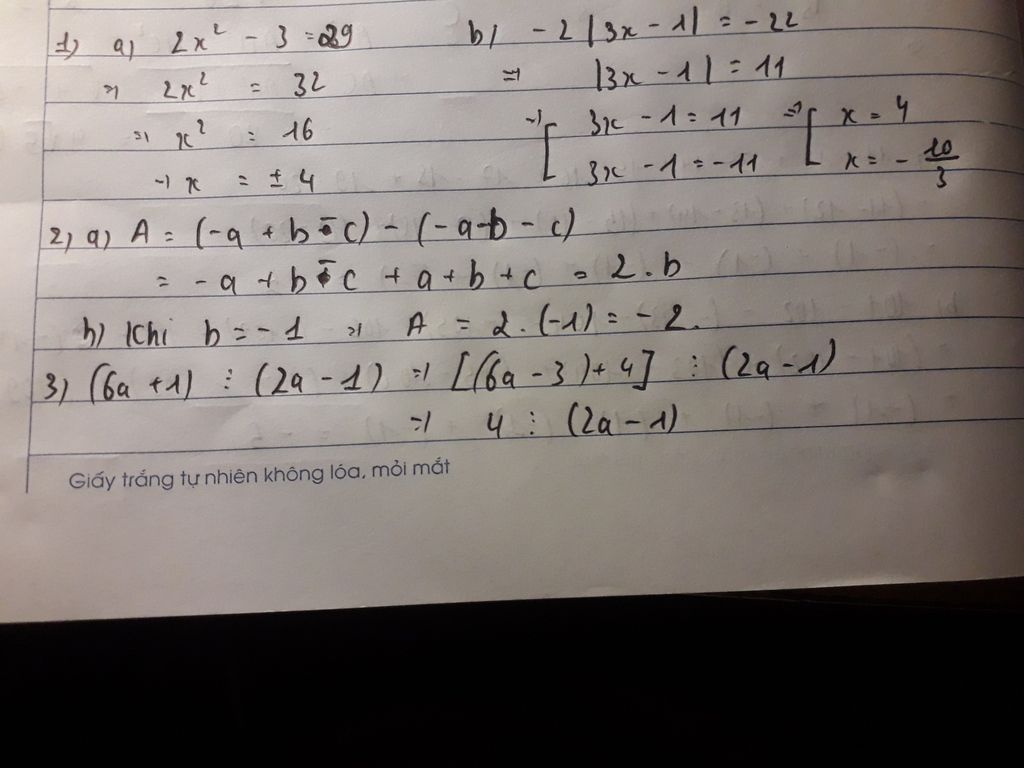 1) a) 2x² - 3 = 29 b) -2|3x - 1| = -22
=> 2x² = 32 => |3x - 1| = 11
=> x² = 16 => [ 3x - 1 = 11 => [ x = 4
=> x = ± 4 3x - 1 = -11 x = - 10/3
2) a) A = (-a + b - c) - (-a - b - c)
= -a + b - c + a + b + c = 2.b
b) Khi b = -1 => A = 2.(-1) = -2.
3) (6a + 1) ⋮ (2a - 1) => [(6a - 3) + 4] ⋮ (2a - 1)
=> 4 ⋮ (2a - 1)
Giấy trắng tự nhiên không lóa, mỏi mắt